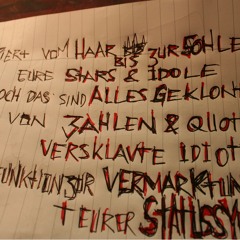 VOM HAAR BIS ZUR SOHLE
EURE STARS & IDOLE
DOCH DAS SIND ALLES GEKLON
VON ZAHLEN & QUOT
VERSKLAVTE IDIOT
FUNKTION ZUR VERMARKTUN
+ EURER STATUSSY